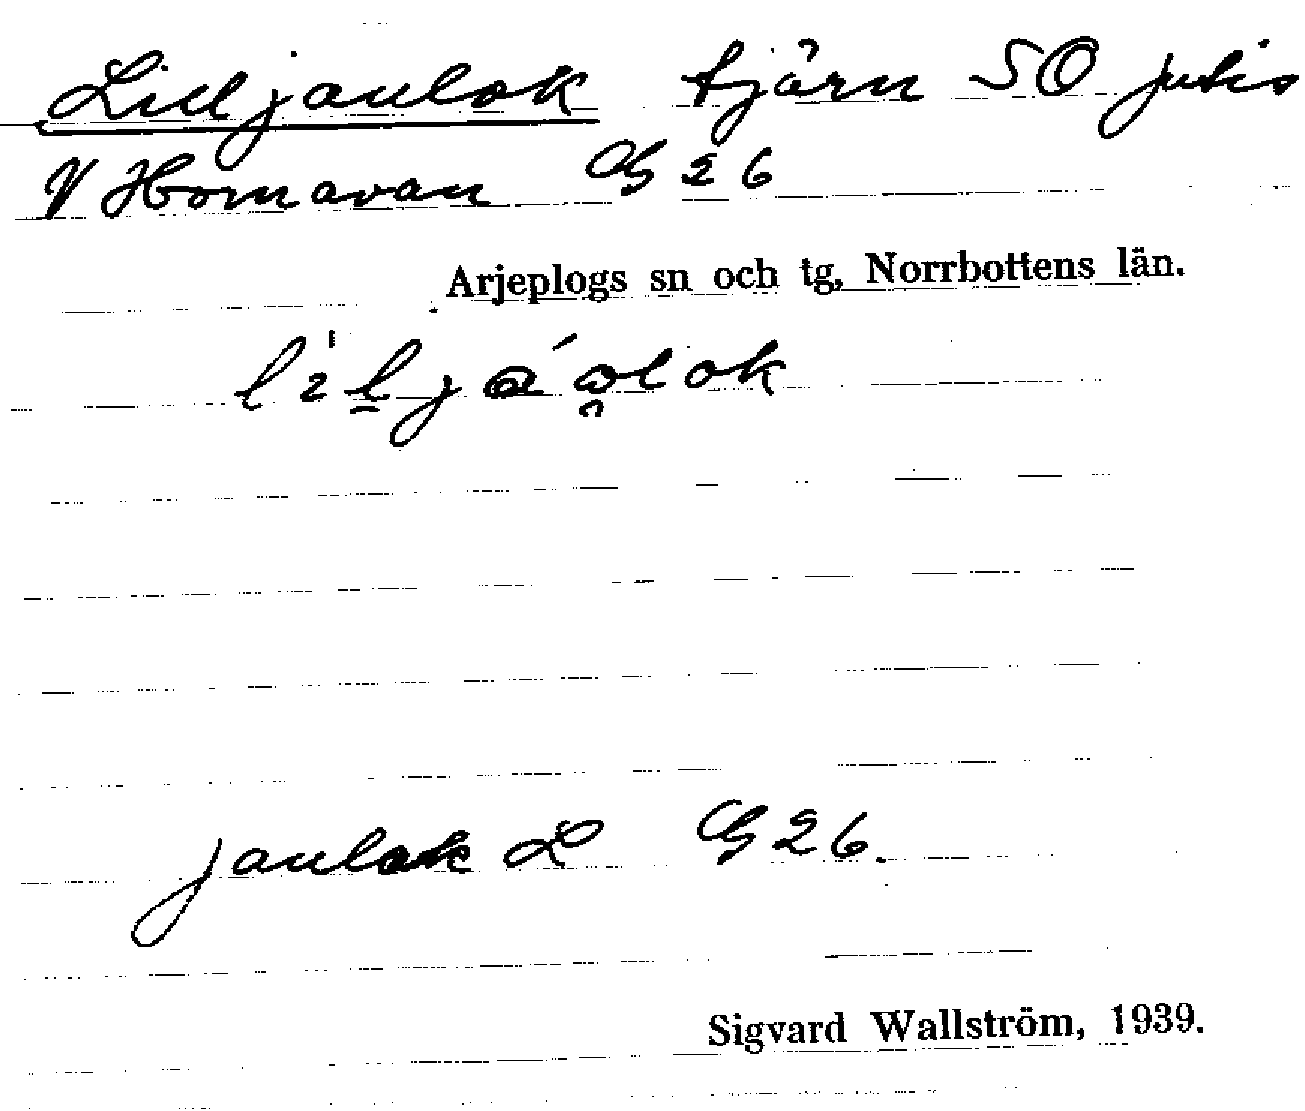 Lilljaulok tjärn SO Jutis
V Hornavan G 26
Arjeplogs sn och tg, Norrbottens län.
jaulok L G 26.
Sigvard Wallström, 1939.